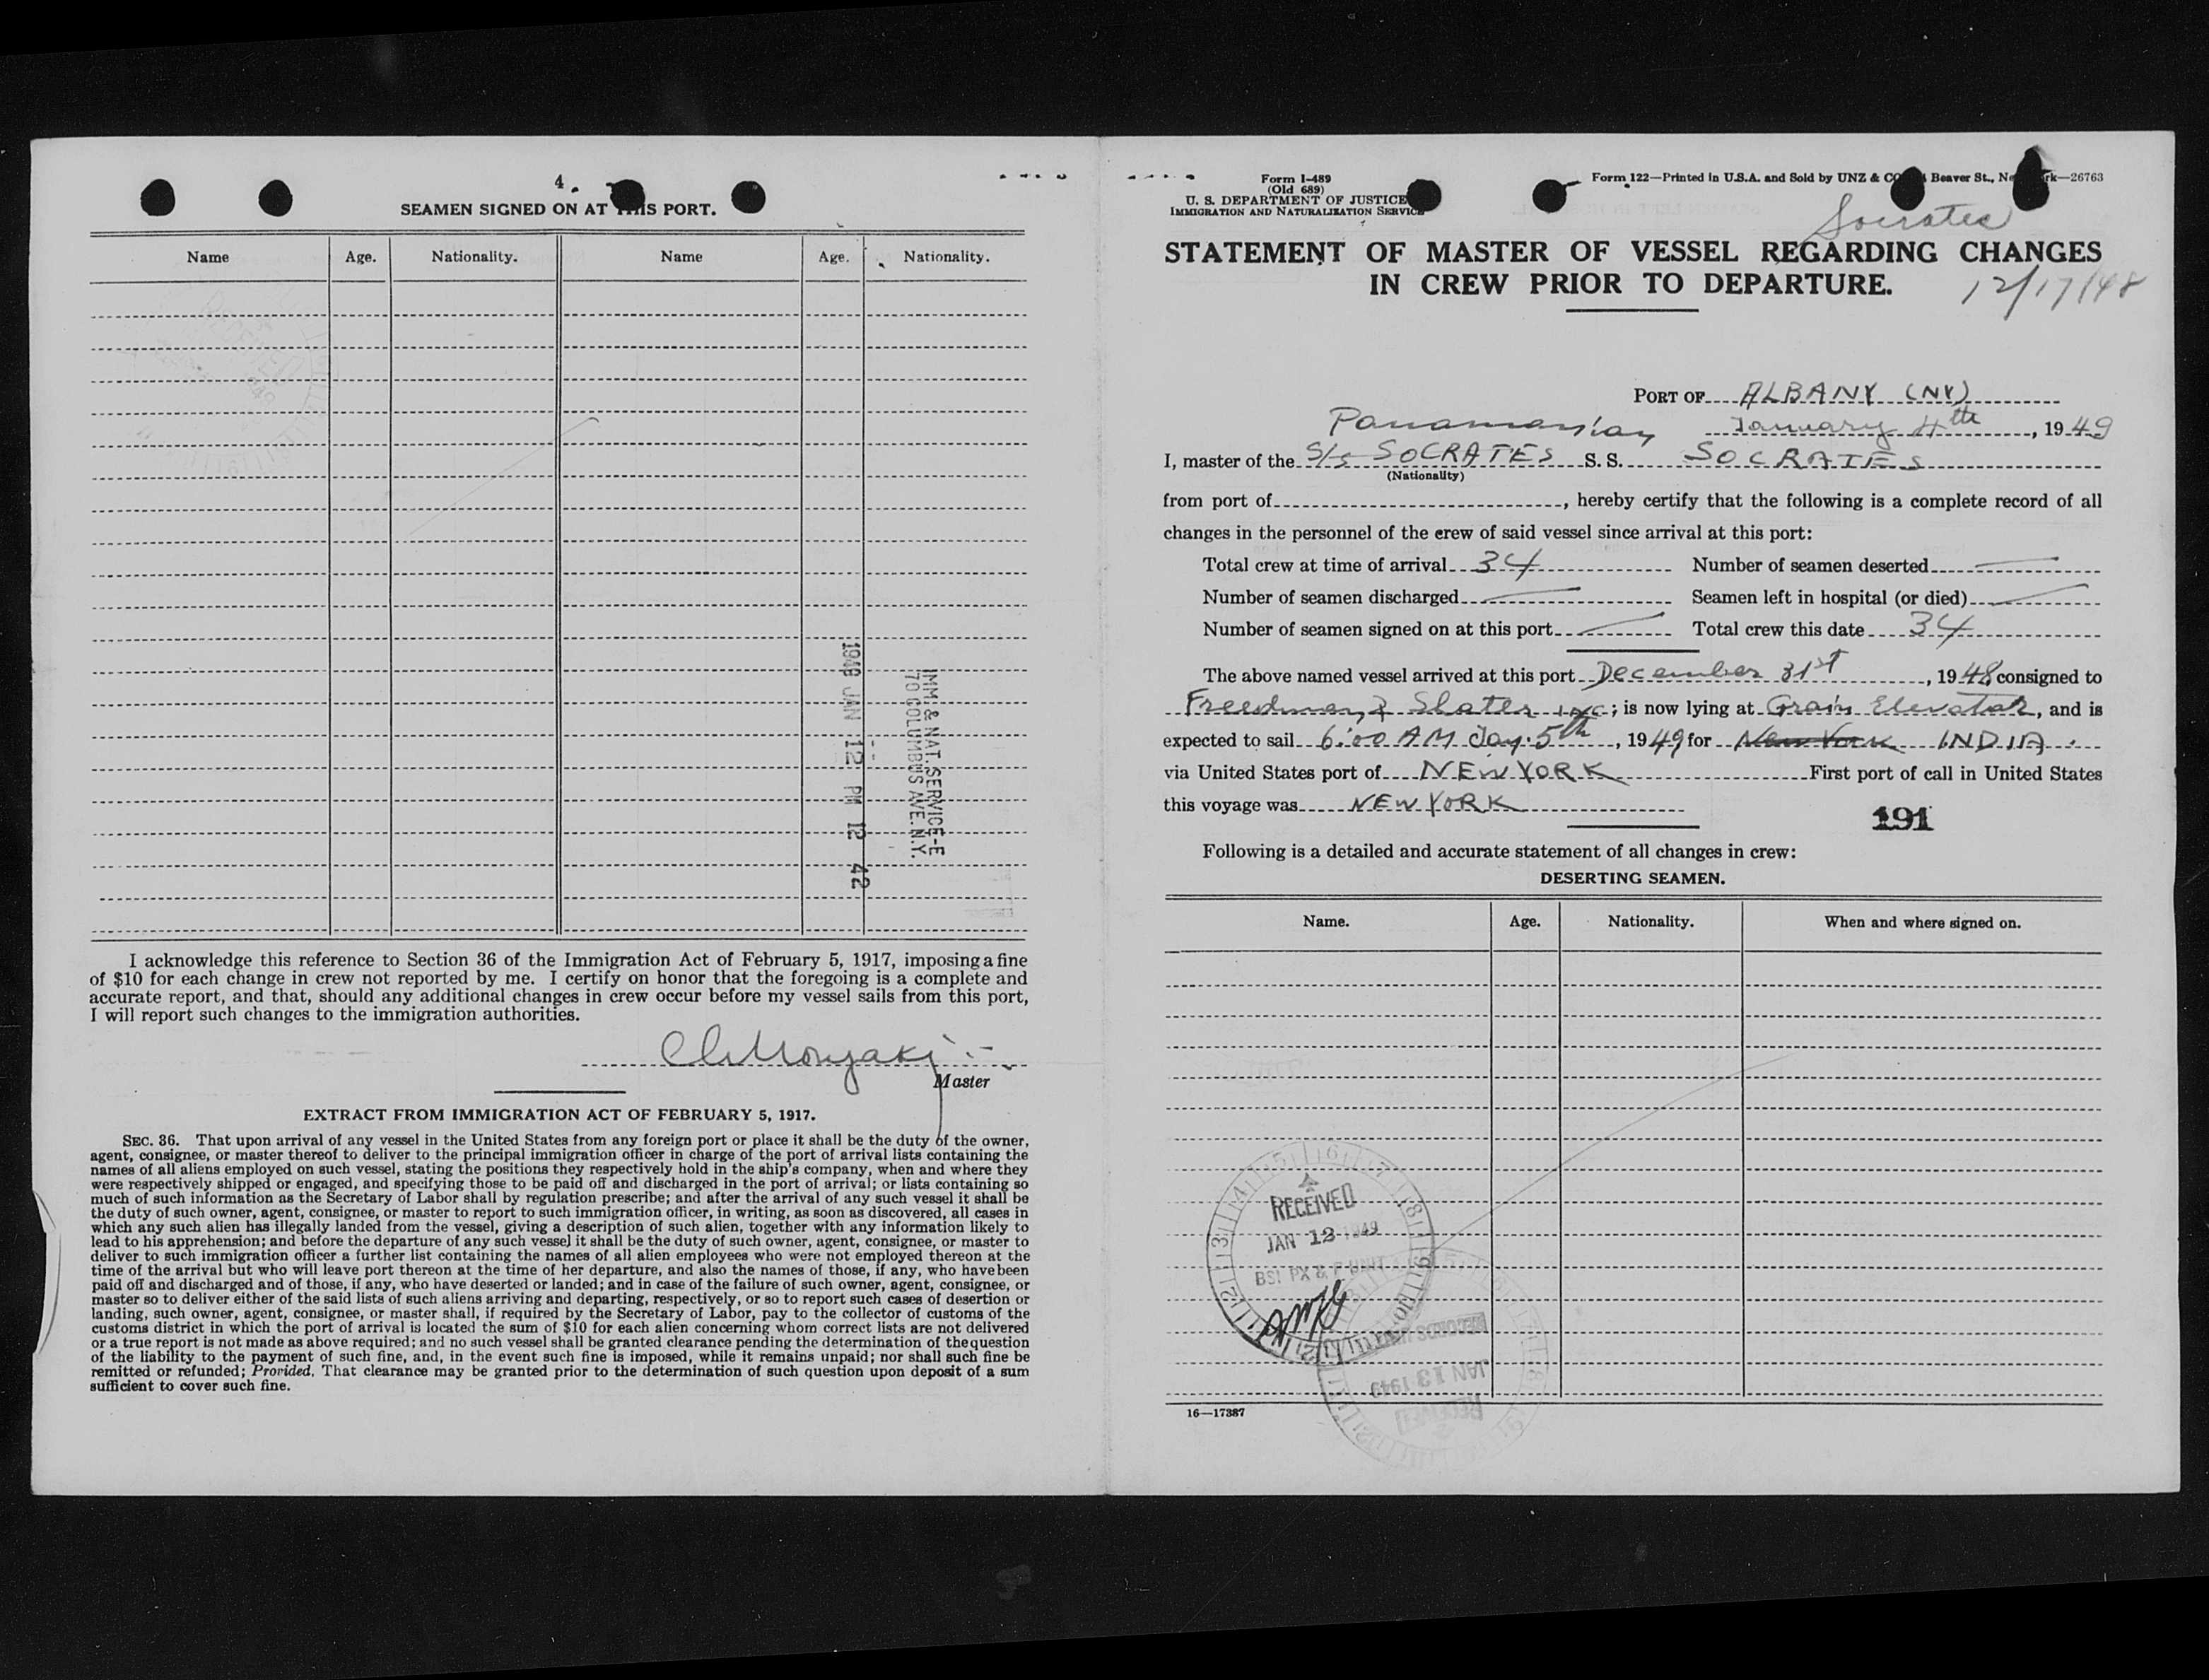 4
SEAMEN SIGNED ON AT THIS PORT.
Name Age. Nationality. Name Age. Nationality.
IMM & NAT. SERVICE-E
70 COLUMBUS AVE. N.Y.
1949 JAN 12 PM 12 42
I acknowledge this reference to Section 36 of the Immigration Act of February 5, 1917, imposing a fine
of $10 for each change in crew not reported by me. I certify on honor that the foregoing is a complete and
accurate report, and that, should any additional changes in crew occur before my vessel sails from this port,
I will report such changes to the immigration authorities.
Master
EXTRACT FROM IMMIGRATION ACT OF FEBRUARY 5, 1917.
SEC. 36. That upon arrival of any vessel in the United States from any foreign port or place it shall be the duty of the owner,
agent, consignee, or master thereof to deliver to the principal immigration officer in charge of the port of arrival lists containing the
names of all aliens employed on such vessel, stating the positions they respectively hold in the ship's company, when and where they
were respectively shipped or engaged, and specifying those to be paid off and discharged in the port of arrival; or lists containing so
much of such information as the Secretary of Labor shall by regulation prescribe; and after the arrival of any such vessel it shall be
the duty of such owner, agent, consignee, or master to report to such immigration officer, in writing, as soon as discovered, all cases in
which any such alien has illegally landed from the vessel, giving a description of such alien, together with any information likely to
lead to his apprehension; and before the departure of any such vessel it shall be the duty of such owner, agent, consignee, or master to
deliver to such immigration officer a further list containing the names of all alien employees who were not employed thereon at the
time of the arrival but who will leave port thereon at the time of her departure, and also the names of those, if any, who have been
paid off and discharged and of those, if any, who have deserted or landed; and in case of the failure of such owner, agent, consignee, or
master so to deliver either of the said lists of such aliens arriving and departing, respectively, or so to report such cases of desertion or
landing, such owner, agent, consignee, or master shall, if required by the Secretary of Labor, pay to the collector of customs of the
customs district in which the port of arrival is located the sum of $10 for each alien concerning whom correct lists are not delivered
or a true report is not made as above required; and no such vessel shall be granted clearance pending the determination of the question
of the liability to the payment of such fine, and, in the event such fine is imposed, while it remains unpaid; nor shall such fine be
remitted or refunded; Provided, That clearance may be granted prior to the determination of such question upon deposit of a sum
sufficient to cover such fine.
Form I-489
(Old 689)
U. S. DEPARTMENT OF JUSTICE
IMMIGRATION AND NATURALIZATION SERVICE
Form 122—Printed in U.S.A. and Sold by UNZ & CO Beaver St., New York—26763
Socrates
STATEMENT OF MASTER OF VESSEL REGARDING CHANGES
IN CREW PRIOR TO DEPARTURE.
12/17/48
PORT OF ALBANY (NY)
Panamanian January 4th, 1949
I, master of the S/s SOCRATES S. S. SOCRATES
(Nationality)
from port of, hereby certify that the following is a complete record of all
changes in the personnel of the crew of said vessel since arrival at this port:
Total crew at time of arrival 34 Number of seamen deserted
Number of seamen discharged Seamen left in hospital (or died)
Number of seamen signed on at this port Total crew this date 34
The above named vessel arrived at this port December 31st, 1948 consigned to
Freedman & Slater INC; is now lying at Grain Elevator, and is
expected to sail 6:00 AM Jan. 5th, 1949 for New York INDIA.
via United States port of NEW YORK First port of call in United States
this voyage was NEW YORK
191
Following is a detailed and accurate statement of all changes in crew:
DESERTING SEAMEN.
Name. Age. Nationality. When and where signed on.
RECEIVED
JAN 12 1949
BSI PX & P UNIT
RECEIVED
JAN 13 1949
16—17387